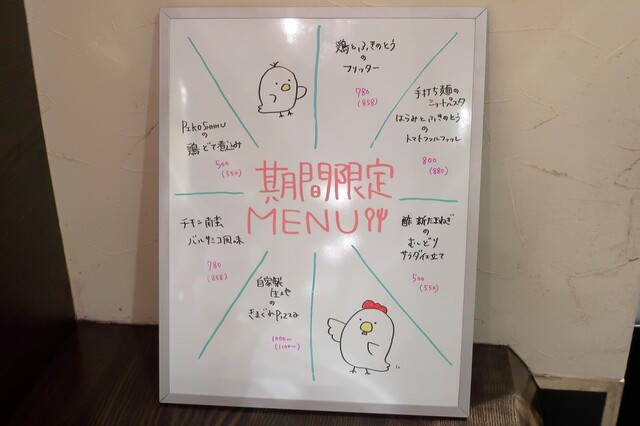 鶏とふきのとう
の
フリッター
780
(858)
手打ち麺の
ショートパスタ
はらみとふきのとう
の
トマトファルファッレ
800
(880)
PikoSiomu
の
鶏どて煮込み
500
(550)
期間限定
MENU
チキン南蛮
バルサミコ風味
780
(858)
酢新たまねぎ
の
むしどり
サラダ仕立て
500
(550)
自家製
生地
の
きまぐれPizza
1000
(1100)